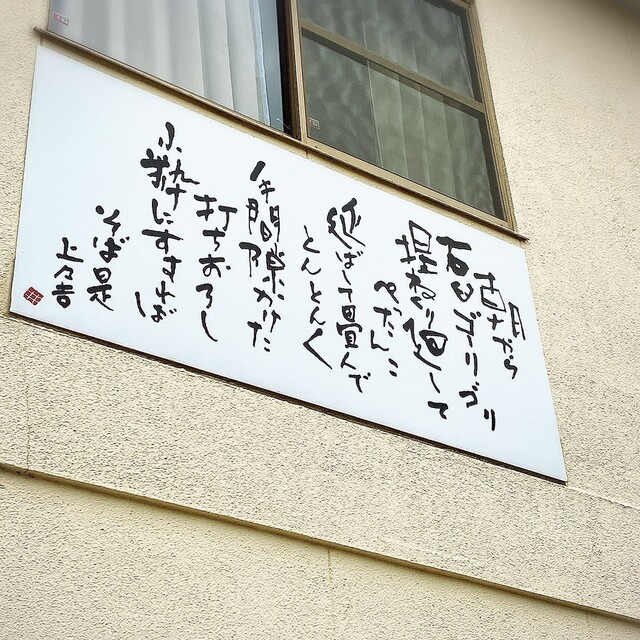 朝から
石臼ゴリゴリ
捏ねり廻して
ぺったんこ
延ばして畳んで
とんとんく
手間隙かけた
打ちおろし
小粋にすすれば
そば是
上々吉